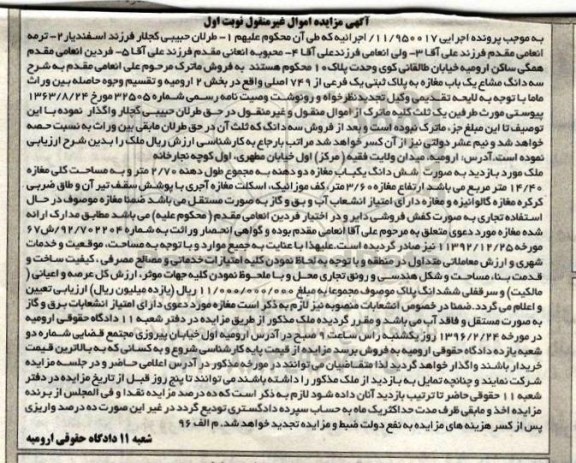 آگهی مزایده اموال غیرمنقول نوبت اول
به موجب پرونده اجرایی ۱۱/۹۵۰۰۱۷ اجرائیه که طی آن محکوم علیهم ۱- طرلان حبیبی کجلار فرزند اسفندیار ۲- ترمه
انعامی مقدم فرزند علی آقا ۳- ولی انعامی فرزند علی آقا ۴- محبوبه انعانی مقدم فرزند علی آقا ۵- فردین انعامی مقدم
همگی ساکن ارومیه خیابان طالقانی کوی وحدت پلاک ۱۰ محکوم هستند به فروش ماترک مرحوم علی انعامی مقدم به شرح
سه دانگ مشاع یک باب مغازه به پلاک ثبتی یک فرعی از ۷۴۹ اصلی واقع در بخش ۲ ارومیه و تقسیم وجوه حاصله بین وراث
ماما با توجه به لایحه تقدیمی وکیل تجدیدنظرخواه و رونوشت وصیت نامه رسمی شماره ۳۲۵۰۵ مورخ ۱۳۶۳/۸/۲۴
پیوستی مورث طرفین یک ثلث کلیه ماترک از اموال منقول و غیرمنقول در حق طرلان حبیبی کجلار واگذار نموده با این
توصیف تا این مبلغ جزء ماترک نبوده است و بعد از فروش سه دانگ که ثلث آن در حق طرلان مابقی بین وراث به نسبت حصه
خواهد شد و نیم عشر دولتی نیز از آن کسر خواهد شد مراتب بارجاع به کارشناسی ارزش ریال ملک را بدین شرح ارزیابی
نموده است. آدرس: ارومیه، میدان ولایت فقیه (مرکز) اول خیابان مطهری، اول کوچه نجارخانه
ملک مورد بازدید به صورت شش دانگ یکباب مغازه دو دهنه به مجموع طول دهنه ۲/۷۰ متر و به مساحت کلی مغازه
۱۴/۴۰ متر مربع می باشد ارتفاع مغازه ۳/۶۰ متر، کف موزائیک، اسکلت مغازه آجری با پوشش سقف تیر آهن و طاق ضربی
کرکره مغازه گالوانیزه و مغازه دارای امتیاز انشعاب آب و بق و گاز به صورت مستقل می باشد ضمنا مغازه موصوف در حال
استفاده تجاری به صورت کفش فروشی دایر و در اختیار فردین انعامی مقدم (محکوم علیه) می باشد مطابق مدارک ارائه
شده مغازه مورد دعوی متعلق به مرحوم علی آقا انعامی مقدم بوده و گواهی انحصار وراثت به شماره ۹۲/۷۰۲۲۰۴/ش
مورخه ۱۳۹۲/۱۲/۲۵ نیز صادر گردیده است. علیهذا با عنایت به جمیع موارد و با توجه به مساحت، موقعیت و خدمات
شهری و ارزش معاملاتی متداول در منطقه و با توجه به لحاظ نمودن کلیه امتیازات خدماتی و مصالح مصرفی، کیفیت ساخت و
قدمت بنا، مساحت و شکل هندسی و رونق تجاری محل و با ملحوظ نمودن کلیه جهات موثر، ارزش کل عرصه و اعیانی (
مالکیت) و سرقفلی ششدانگ پلاک موصوف مجموعا به مبلغ ۱۱/۰۰۰/۰۰۰/۰۰۰ ریال (یازده میلیون ریال) ارزیابی تعیین
و اعلام می گردد. ضمنا در خصوص انشعابات منصوبه نیز لازم به ذکر است مغازه مورد دعوی دارای امتیاز انشعابات برق و گاز
به صورت مستقل و فاقد آب می باشد و مقرر گردیده ملک مذکور از طریق مزایده در دفتر شعبه ۱۱ دادگاه حقوقی ارومیه
در مورخه ۱۳۹۶/۲/۲۴ روز یکشنبه راس ساعت ۹ صبح در آدرس ارومیه اول خیابان پیروزی مجتمع قضایی شماره دو
شعبه یازده دادگاه حقوقی ارومیه به فروش برسد مزایده از قیمت پایه کارشناسی شروع و به کسانی که به بالاترین قیمت
خریدار باشند واگذار خواهد گردید لذا متقاضیان می توانند در مورخه مذکور در آدرس اعلامی حاضر و در جلسه مزایده
شرکت نمایند و چنانچه تمایل به بازدید از ملک مذکور را داشته باشند می توانند تا پنج روز قبل از تاریخ مزایده در دفتر
شعبه ۱۱ حقوقی حاضر تا ترتیب بازدید آنان داده شود لازم به ذکر است که ده درصد مزایده نقدا و فی المجلس از برنده
مزایده اخذ و مابقی ظرف مدت حداکثر یک ماه به حساب سپرده دادگستری تودیع گردد در غیر این صورت ده درصد واریزی
پس از کسر هزینه های مزایده به نفع دولت ضبط و مزایده تجدید خواهد شد. م الف ۹۶
شعبه ۱۱ دادگاه حقوقی ارومیه